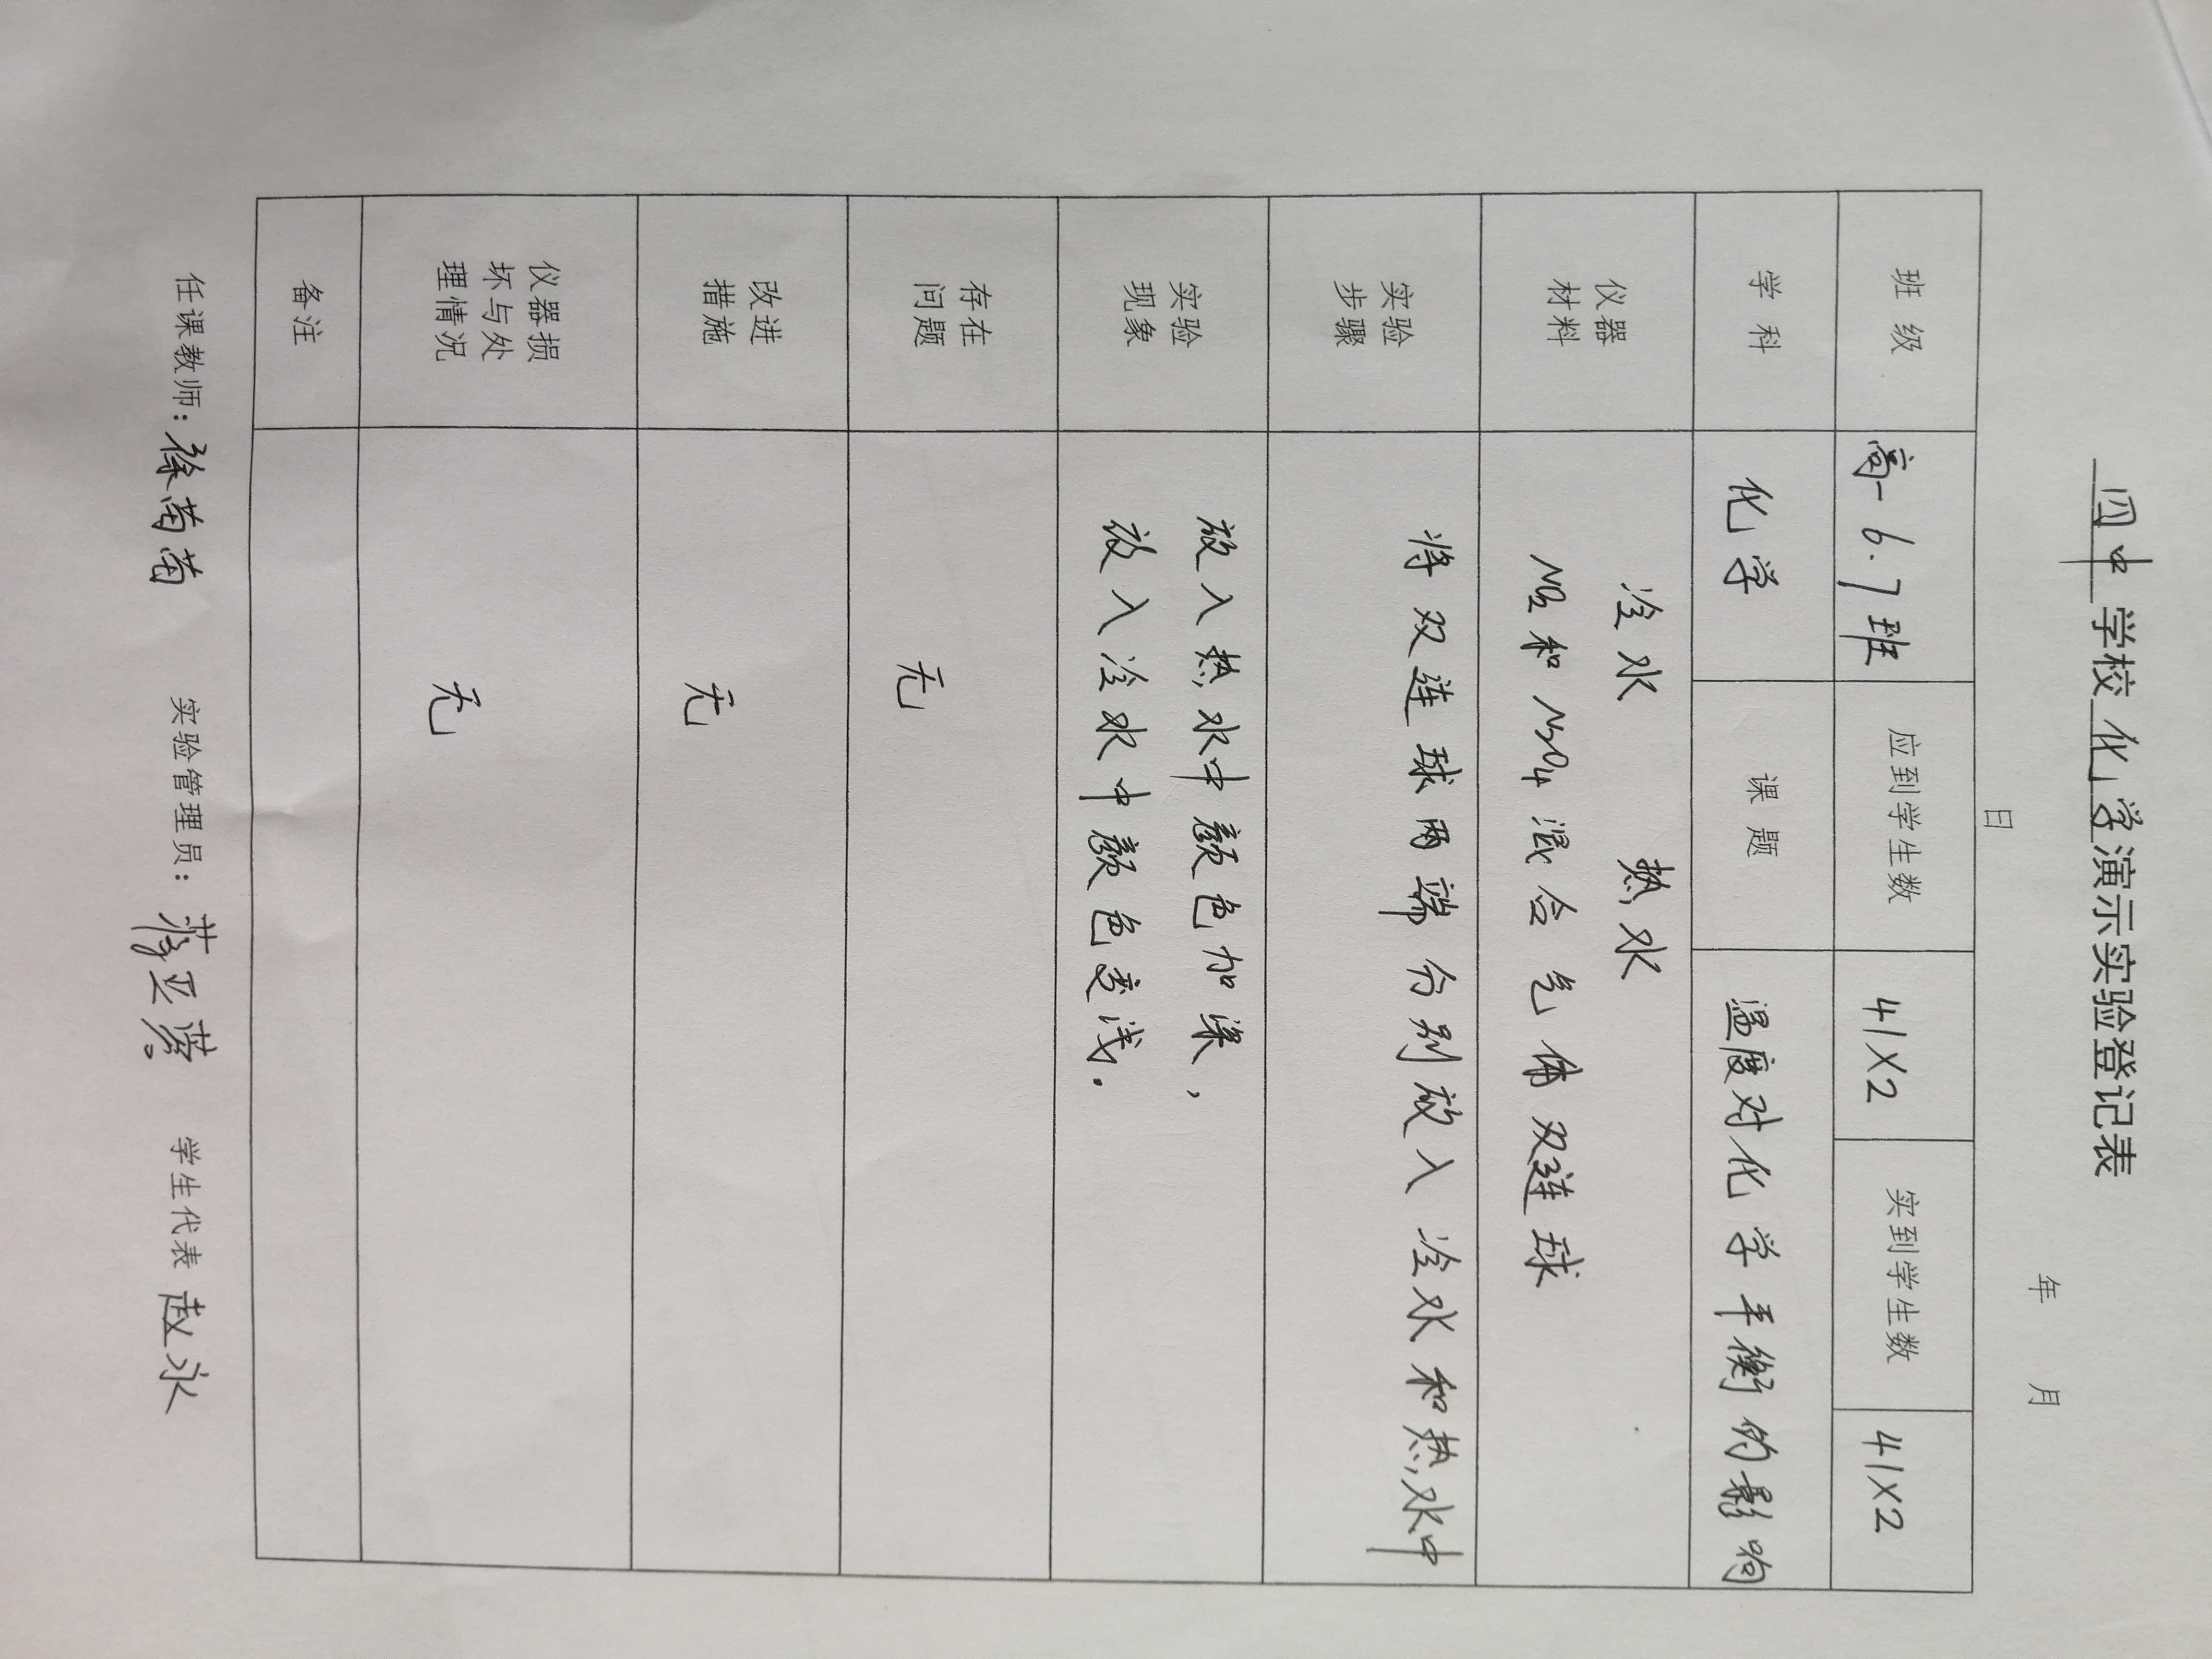 四中学校化学演示实验登记表
年 月
日
班 级 高一6.7班 应到学生数 41X2 实到学生数 41X2
学 科 化学 课 题 温度对化学平衡的影响
仪器
材料
冷水 热水
NO2和N2O4混合气体双连球
实验
步骤
将双连球两端分别放入冷水和热水中
实验
现象
放入热水中颜色加深,
放入冷水中颜色变浅.
存在
问题
无
改进
措施
无
仪器损
坏与处
理情况
无
备注
任课教师:徐苗苗 实验管理员: 学生代表 赵永